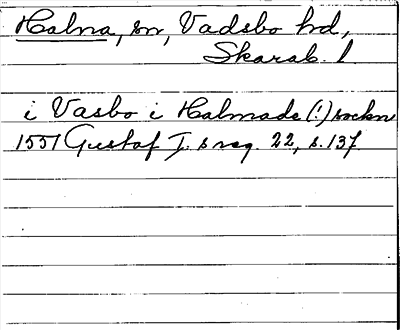 Halna, sn, Vadsbo hd,
Skarab. l
i Vasbo i Halmade (!) sockn
1551 Gustaf I. s reg. 22, s. 137.